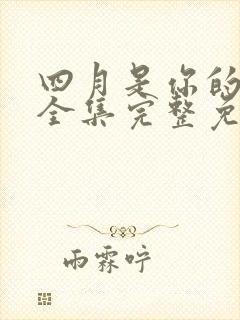 四月是你的
全集完整免
雨霖咛